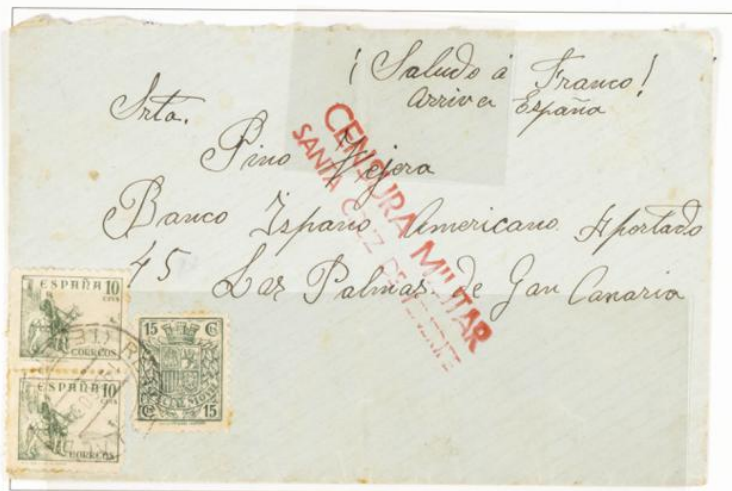 ¡Saludo á Franco!
Arriva España
Srta.
Pino Vejera
Banco Ispano Americano Apartado
45 Las Palmas de Gan Canaria
CENSURA MILITAR
SANTA CRUZ DE TENERIFE
ESPAÑA 10
CTMS
CORREOS
ESPAÑA 10
CTMS
CORREOS
15 Cs
Cs 15